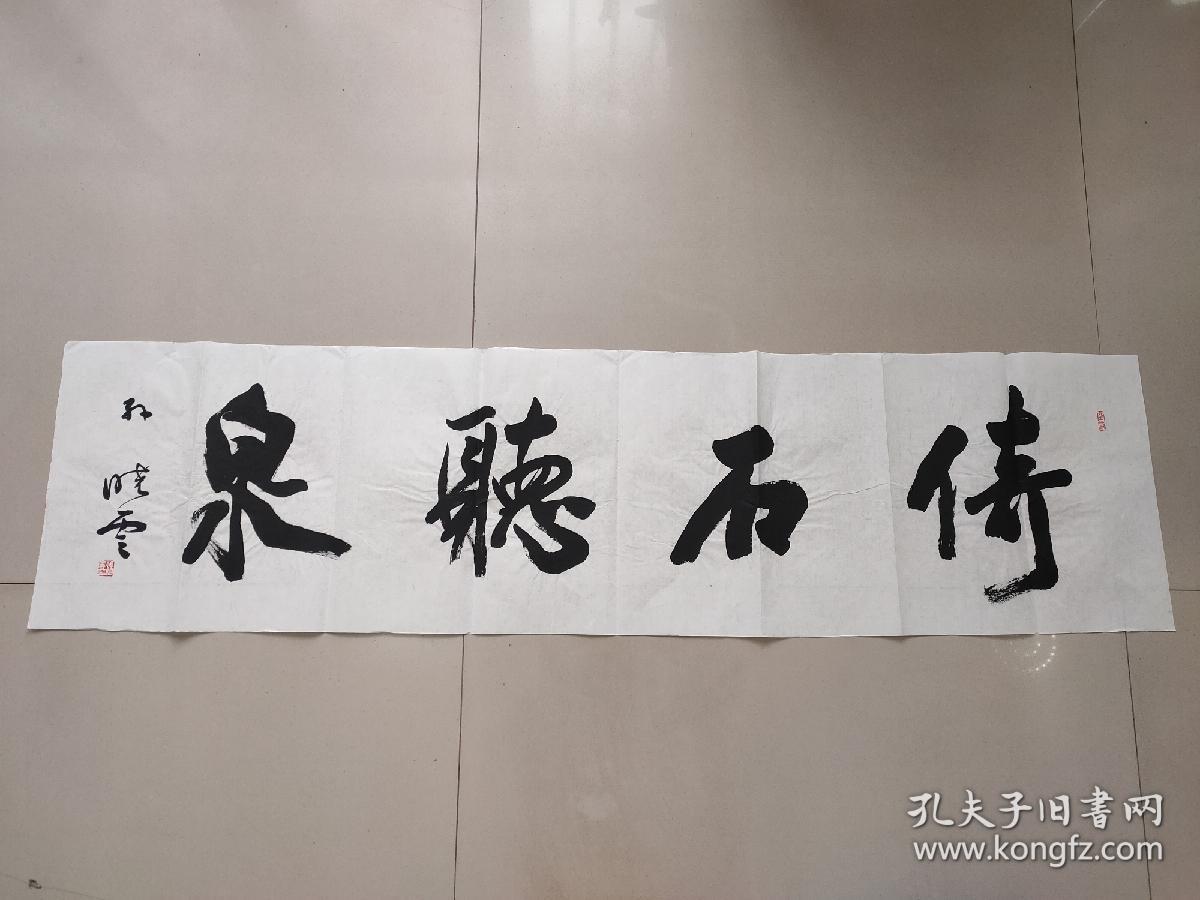 倚石聽泉
孙晓雲
孔夫子旧書网
www.kongfz.com